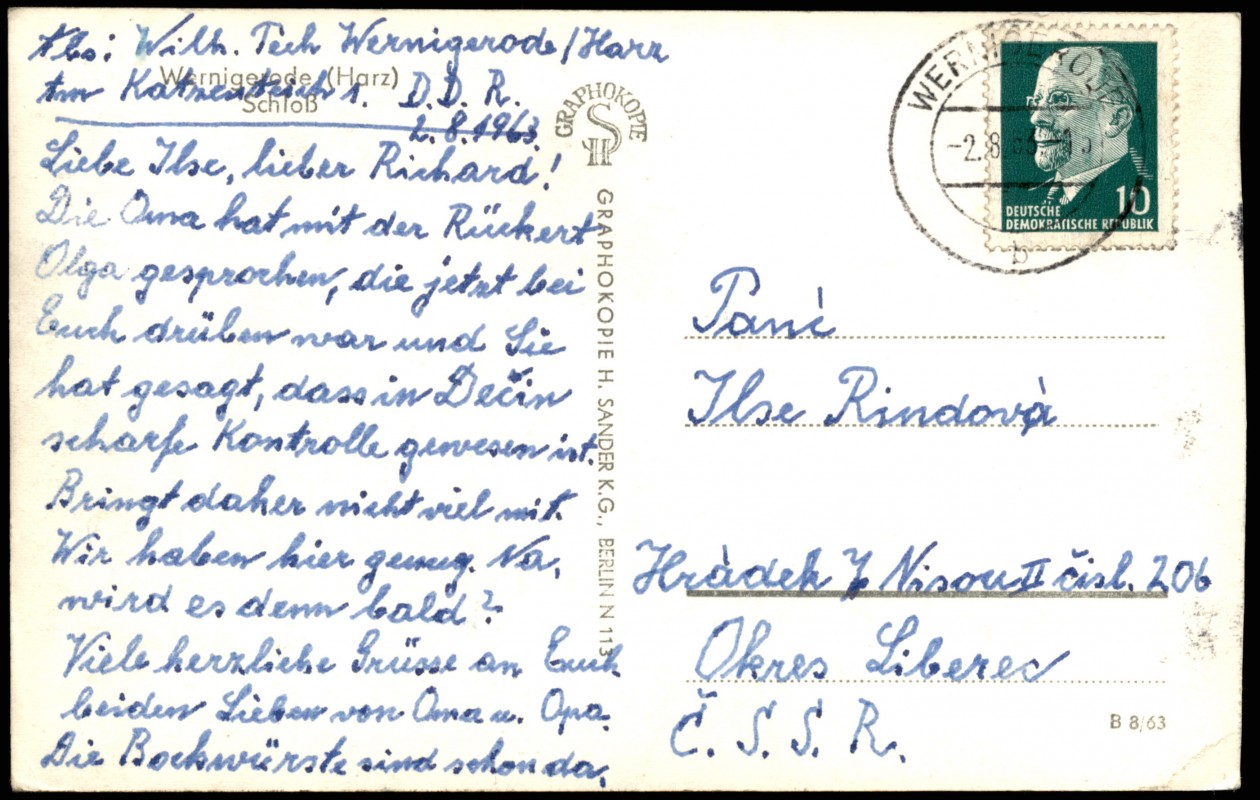 Abs: Wilh. Tech Wernigerode/Harz
Wernigerode (Harz)
Am Katzenteich 1. D.D.R.
Schloß
2.8.1963.
Liebe Ilse, lieber Richard!
Die Oma hat mit der Rückert
Olga gesprochen, die jetzt bei
Euch drüben war und Sie
hat gesagt, dass in Dečin
scharfe Kontrolle gewesen ist.
Bringt daher nicht viel mit.
Wir haben hier genug. Na,
wird es denn bald?
Viele herzliche Grüsse an Euch
beiden Lieben von Oma u. Opa.
Die Bockwürste sind schon da.
GRAPHOKOPIE
SH
GRAPHOKOPIE H. SANDER K.G., BERLIN N 113
WERNIGERODE
-2.8.63-
b
10
DEUTSCHE
DEMOKRATISCHE REPUBLIK
Paní
Ilse Rindová
Hràdek Nisou II čisl. 206
Okres Liberec
Č. S. S. R.
B 8/63